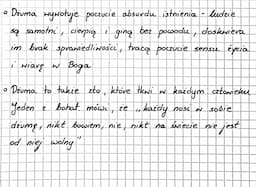 • Dżuma wywołuje poczucie absurdu istnienia - ludzie
są samotni, cierpią i giną bez powodu, doskwiera
im brak sprawiedliwości, tracą poczucie sensu życia
i wiarę w Boga
• Dżuma to także zło, które tkwi w każdym człowieku
Jeden z bohat. mówi, że "każdy nosi w sobie
dżumę, nikt bowiem, nie, nikt na świecie nie jest
od niej wolny"